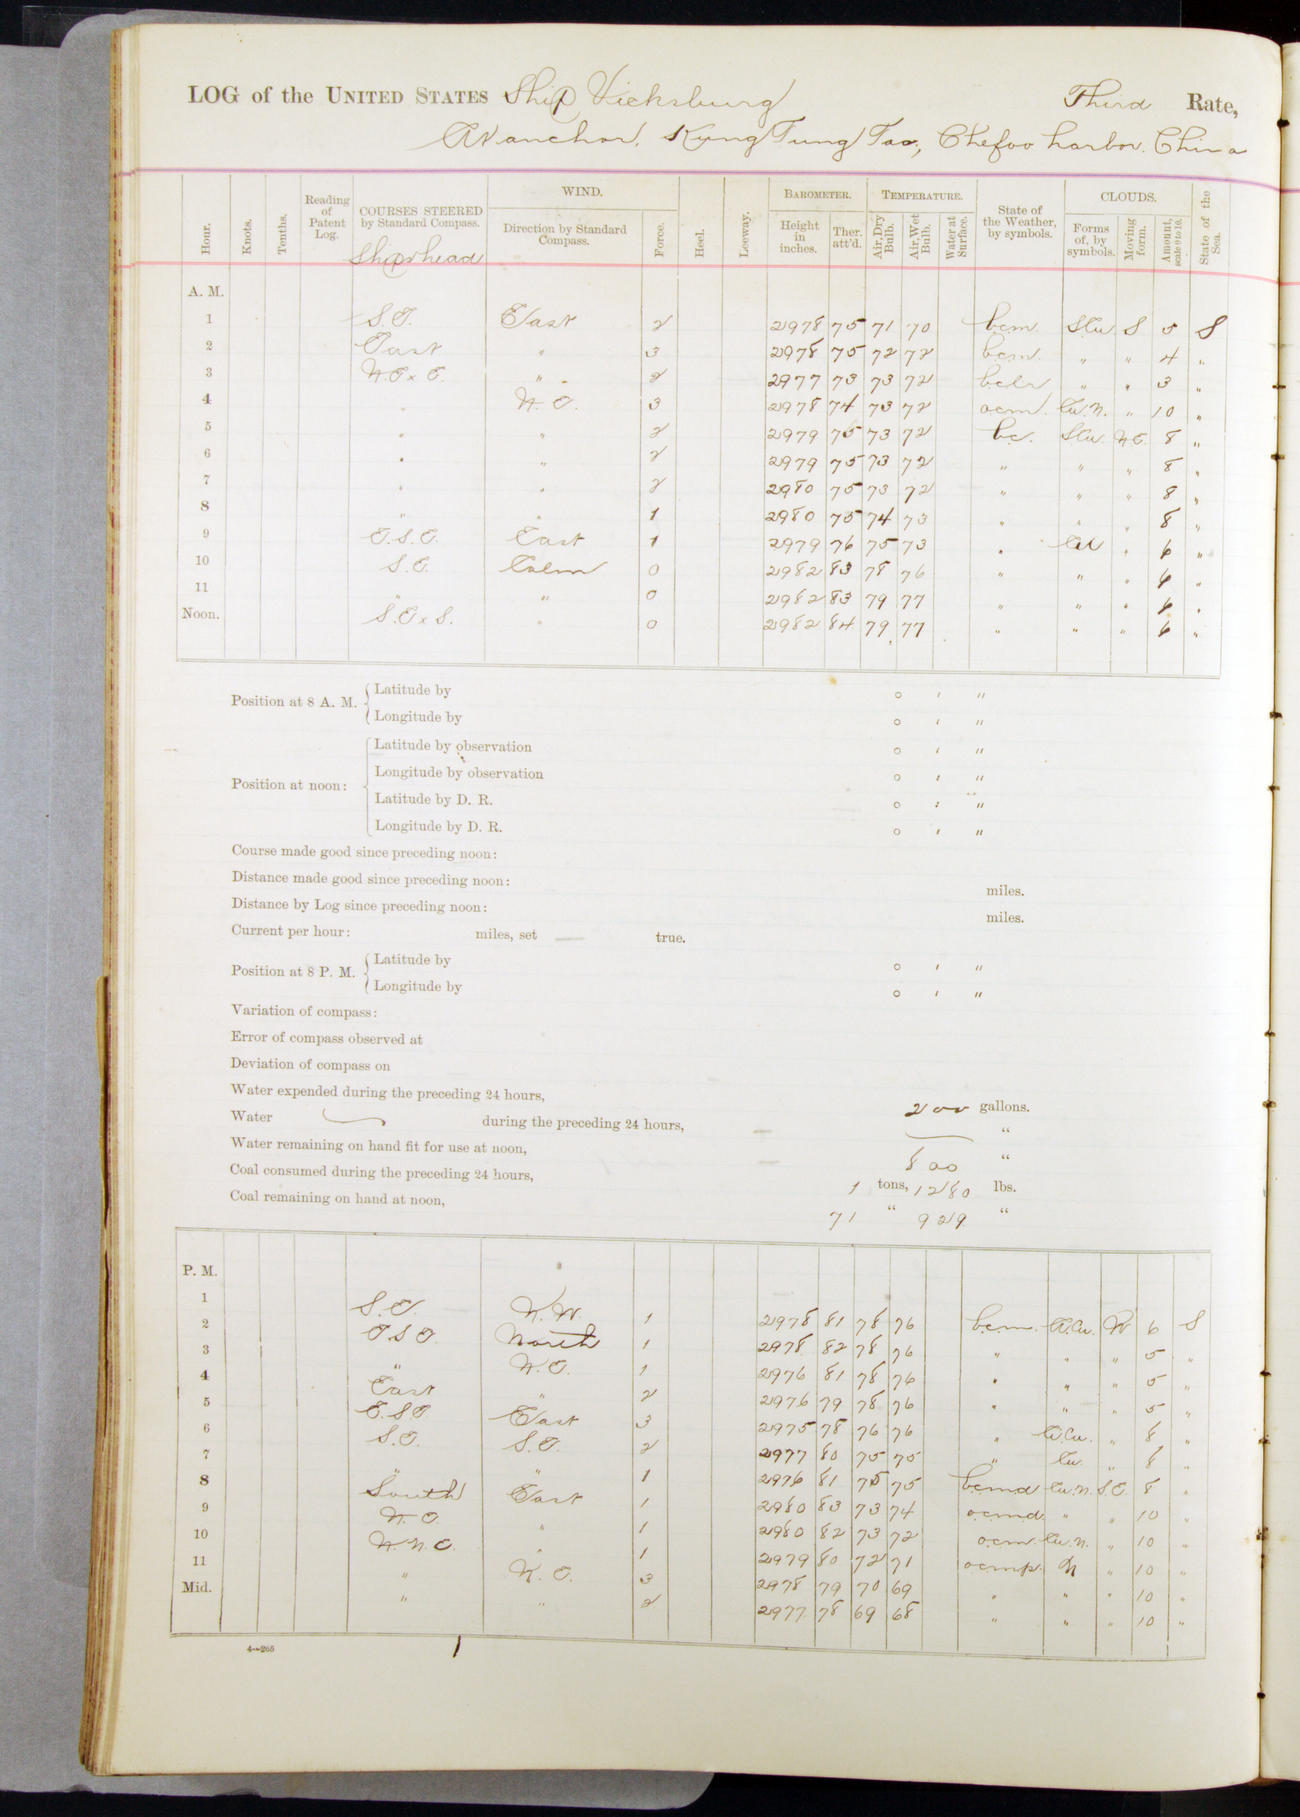 LOG of the UNITED STATES Ship Vicksburg Third Rate,
At anchor, Kung Tung Tao, Chefoo harbor, China
Hour. Knots. Tenths. Reading of Patent Log. COURSES STEERED by Standard Compass. WIND. Direction by Standard Compass. Force. Heel. Leeway. BAROMETER. Height in inches. Ther. att'd. TEMPERATURE. Air, Dry Bulb. Air, Wet Bulb. Water at Surface. State of the Weather, by symbols. CLOUDS. Forms of, by symbols. Moving form. Amount, scale 0 to 10. State of the Sea.
Shiphead
A. M.
1 S.E. East 2 2978 75 71 70 bcm. S Cu S 5 S
2 East " 3 2978 75 72 72 bcm. " " 4 "
3 N.E x E. " 2 2977 73 73 72 " " 3 "
4 " N.E. 3 2978 74 73 72 ocm. Cu.N. " 10 "
5 " " 2 2979 75 73 72 bc. S Cu. N.E. 8 "
6 " " 2 2979 75 73 72 " " " 8 "
7 " " 2 2980 75 73 72 " " " 8 "
8 " " 1 2980 75 74 73 " " " 8 "
9 E.S.E. East 1 2979 76 75 73 " Cu " 6 "
10 S.E. Calm 0 2982 83 78 76 " " " 6 "
11 " " 0 2982 83 79 77 " " " 6 "
Noon. S.E x S. " 0 2982 84 79 77 " " " 6 "
Position at 8 A. M. Latitude by ° ' "
Longitude by ° ' "
Position at noon: Latitude by observation ° ' "
Longitude by observation ° ' "
Latitude by D. R. ° ' "
Longitude by D. R. ° ' "
Course made good since preceding noon:
Distance made good since preceding noon: miles.
Distance by Log since preceding noon: miles.
Current per hour: miles, set true.
Position at 8 P. M. Latitude by ° ' "
Longitude by ° ' "
Variation of compass:
Error of compass observed at
Deviation of compass on
Water expended during the preceding 24 hours, 200 gallons.
Water during the preceding 24 hours, — "
Water remaining on hand fit for use at noon, 800 "
Coal consumed during the preceding 24 hours, 1 tons, 1280 lbs.
Coal remaining on hand at noon, 71 " 929 "
P. M.
1 S.E. N.W. 1 2978 81 78 76 bcm. W 6 S
2 E S E. North 1 2978 82 78 76 " " " 5 "
3 " N.E. 1 2976 81 78 76 " " " 5 "
4 East " 2 2976 79 78 76 " " " 5 "
5 E.S.E. East 3 2975 78 76 76 " " 8 "
6 S.E. S.E. 2 2977 80 75 75 " Cu. " 8 "
7 " " 1 2976 81 75 75 bcmd Cu.N. S.E. 8 "
8 South East 1 2980 83 73 74 ocmd. " " 10 "
9 N.E. " 1 2980 82 73 72 ocm. Cu.N. " 10 "
10 N.N.E. " 1 2979 80 72 71 ocmp. N " 10 "
11 " N.E. 3 2978 79 70 69 " " " 10 "
Mid. " " 2 2977 78 69 68 " " " 10 "
4—265